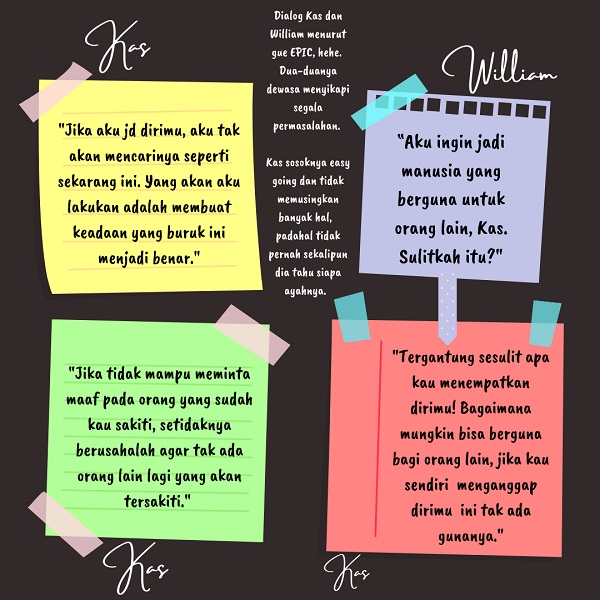 Kas
"Jika aku jd dirimu, aku tak
akan mencarinya seperti
sekarang ini. Yang akan aku
lakukan adalah membuat
keadaan yang buruk ini
menjadi benar."
Dialog Kas dan
William menurut
gue EPIC, hehe.
Dua-duanya
dewasa menyikapi
segala
permasalahan.
Kas sosoknya easy
going dan tidak
memusingkan
banyak hal,
padahal tidak
pernah sekalipun
dia tahu siapa
ayahnya.
William
"Aku ingin jadi
manusia yang
berguna untuk
orang lain, Kas.
Sulitkah itu?"
"Jika tidak mampu meminta
maaf pada orang yang sudah
kau sakiti, setidaknya
berusahalah agar tak ada
orang lain lagi yang akan
tersakiti."
Kas
"Tergantung sesulit apa
kau menempatkan
dirimu! Bagaimana
mungkin bisa berguna
bagi orang lain, jika kau
sendiri menganggap
dirimu ini tak ada
gunanya."
Kas